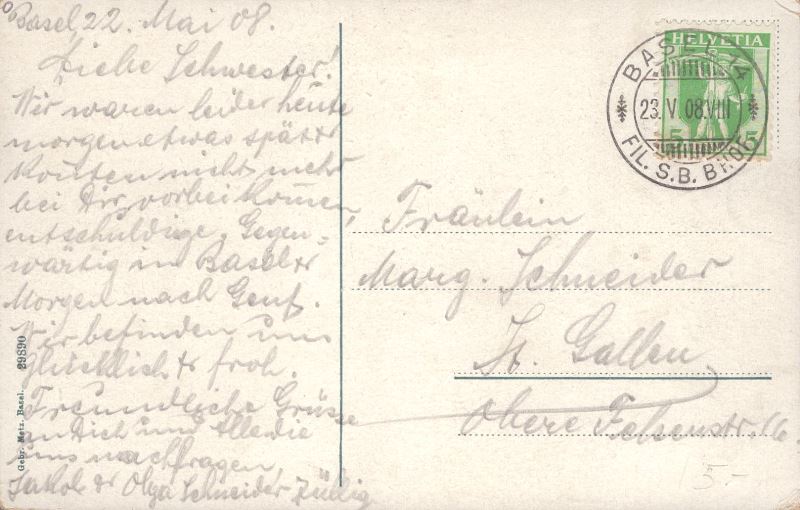 Basel, 22. Mai 08.
Liebe Schwester!
Wir waren leider heute
morgen etwas spät &
konten nicht mehr
bei Dir vorbei komen,
entschuldige. Gegen-
wärtig in Basel &
Morgen nach Genf.
Wir befinden uns
Glücklich & froh.
Freundliche Grüsse
an Dich und Alle die
uns nachfragen
Jakob & Olga Schneider-Züllig
Gebr. Metz, Basel. 29890
HELVETIA
5 5
BASEL 14
23. V. 08. VIII
FIL. S.B. BHOF
Fräulein
Marg. Schneider
St. Gallen
Obere Felsenstr. 16
15.-